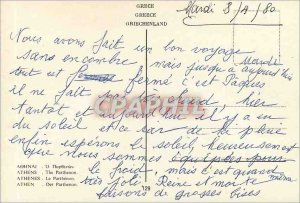 GRÈCE
GREECE
GRIECHENLAND
Mardi 8/4/80
Nous avons fait un bon voyage
sans encombre mais jusqu'à aujourd'hui Mardi
tout est fermé c'est Pâques
il ne fait pas chaud, hier
tantôt et aujourd'hui il y a eu
du soleil et ce soir de la pluie
enfin espérons le soleil, heureusement
que nous sommes équipées pour
le froid, mais c'est quand même
très joli. Reine et moi te
faisons de grosses bises
ΑΘΗΝΑΙ Ὁ Παρθενών.
ATHENS The Parthenon.
ATHENES Le Parthénon.
ATHEN Der Parthenon.
709
PRCARD